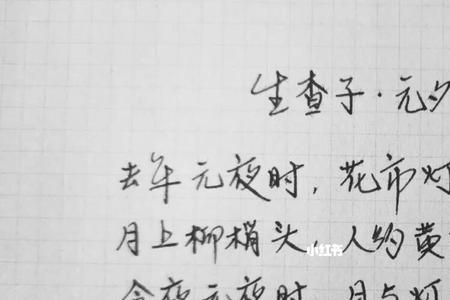 生查子·元夕
去年元夜时，花市灯
月上柳梢头，人约黄
小红书
元夜时，月与灯